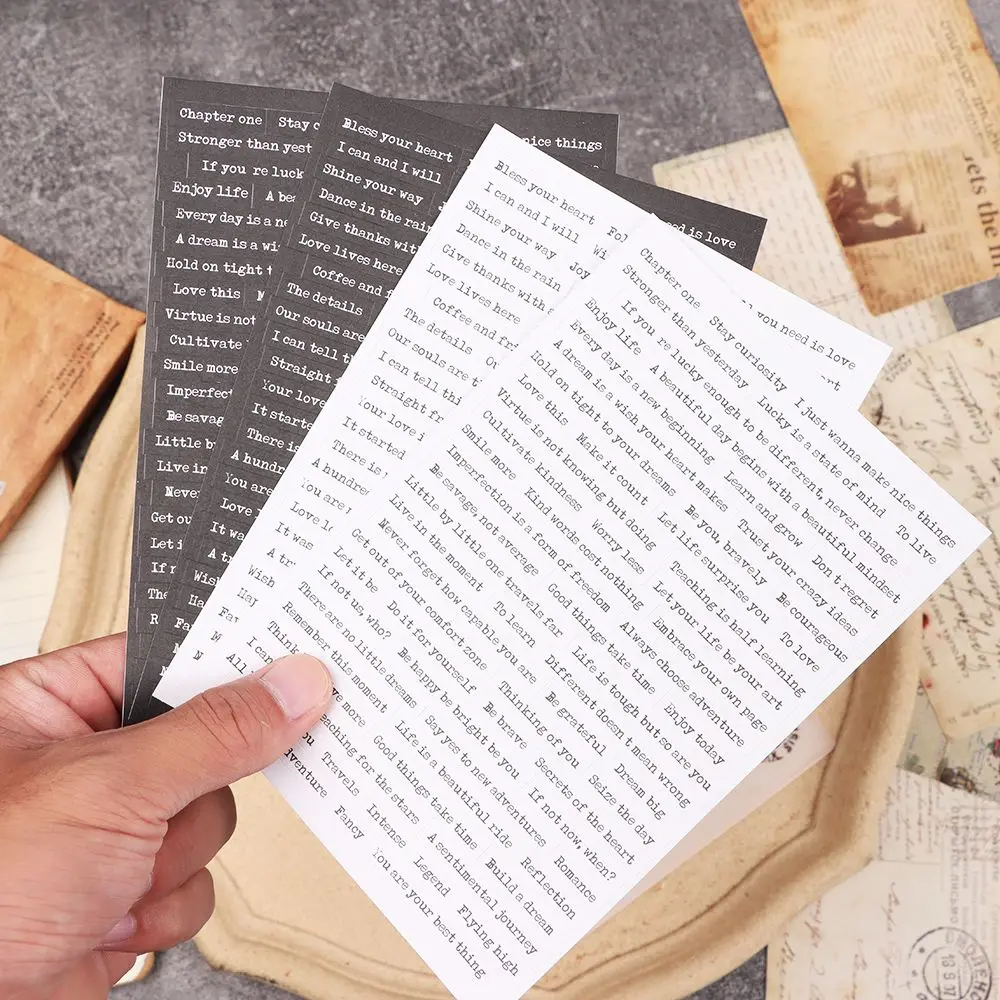 Chapter one Stay
Stronger than
If you re luck
Enjoy life
Every day is a
A dream is a
Hold on tight
Love this
Virtue is not
Cultivate
Smile more
Imperfect
Be savag
Little by
Live in
Never
Get ou
Let i
nice things
Bless your heart
I can and I will
Shine your way
Dance in the rain
Give thanks with
Love lives here
Coffee and
The details
Our souls are
I can tell th
Straight
Your love
It started
There is
A hundr
You are
Love
It was
A tr
Wish
need is love
Bless your heart
I can and I will
Shine your way
Dance in the rain Joy
Give thanks with
Love lives here
Coffee and fr
The details
Our souls are
I can tell thi
Straight fr
Your love i
It started
There is
A hundre
You are
Love
It was
A tr
Wish
you need is love
Chapter one Stay curiosity I just wanna make nice things
Stronger than yesterday Lucky is a state of mind To live
If you re lucky enough to be different, never change
Enjoy life A beautiful day begins with a beautiful mindset
Every day is a new beginning Learn and grow Don t regret
A dream is a wish your heart makes Trust your crazy ideas
Hold on tight to your dreams Be you, bravely Be courageous
Love this Make it count Let life surprise you To love
Virtue is not knowing but doing Teaching is half learning
Cultivate kindness Worry less Let your life be your art
Smile more Kind words cost nothing Embrace your own page
Imperfection is a form of freedom Always choose adventure
Be savage, not average Good things take time Enjoy today
Little by little one travels far Life is tough but so are you
Live in the moment To learn Different doesn t mean wrong
Never forget how capable you are Be grateful Dream big
Get out of your comfort zone Thinking of you Seize the day
Let it be Do it for yourself Be brave Secrets of the heart
If not us, who? Be happy be bright be you If not now, when?
There are no little dreams Say yes to new adventures Romance
Remember this moment Life is a beautiful ride Reflection
Think ve more Good things take time Build a dream
I can eaching for the stars A sentimental journey
All ou Travels Intense Legend Flying high
dventure Fancy You are your best thing